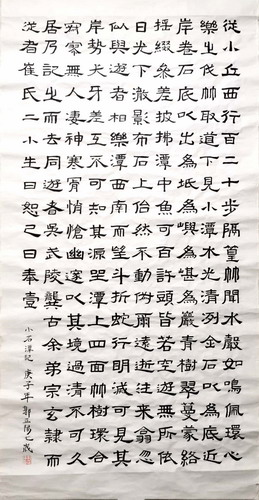 從小丘西行百二十步隔篁竹聞水聲如鳴佩環心
樂之伐竹取道下見小潭水光清冽全石以為底近
岸卷石底以出為坻為嶼為嵁為巖青樹翠蔓蒙絡
搖綴參差披拂潭中魚可百許頭皆若空遊無所依
日光下澈影布石上佁然不動俶爾遠逝往來翕忽
似與遊者相樂潭西南而望斗折蛇行明滅可見其
岸勢犬牙差互不可知其源坐潭上四面竹樹環合
寂寥無人淒神寒骨悄愴幽邃以其境過清不可久
居乃記之而去同遊者吳武陵龔古余弟宗玄隸而
從者崔氏二小生曰恕己曰奉壹
小石潭記 庚子年